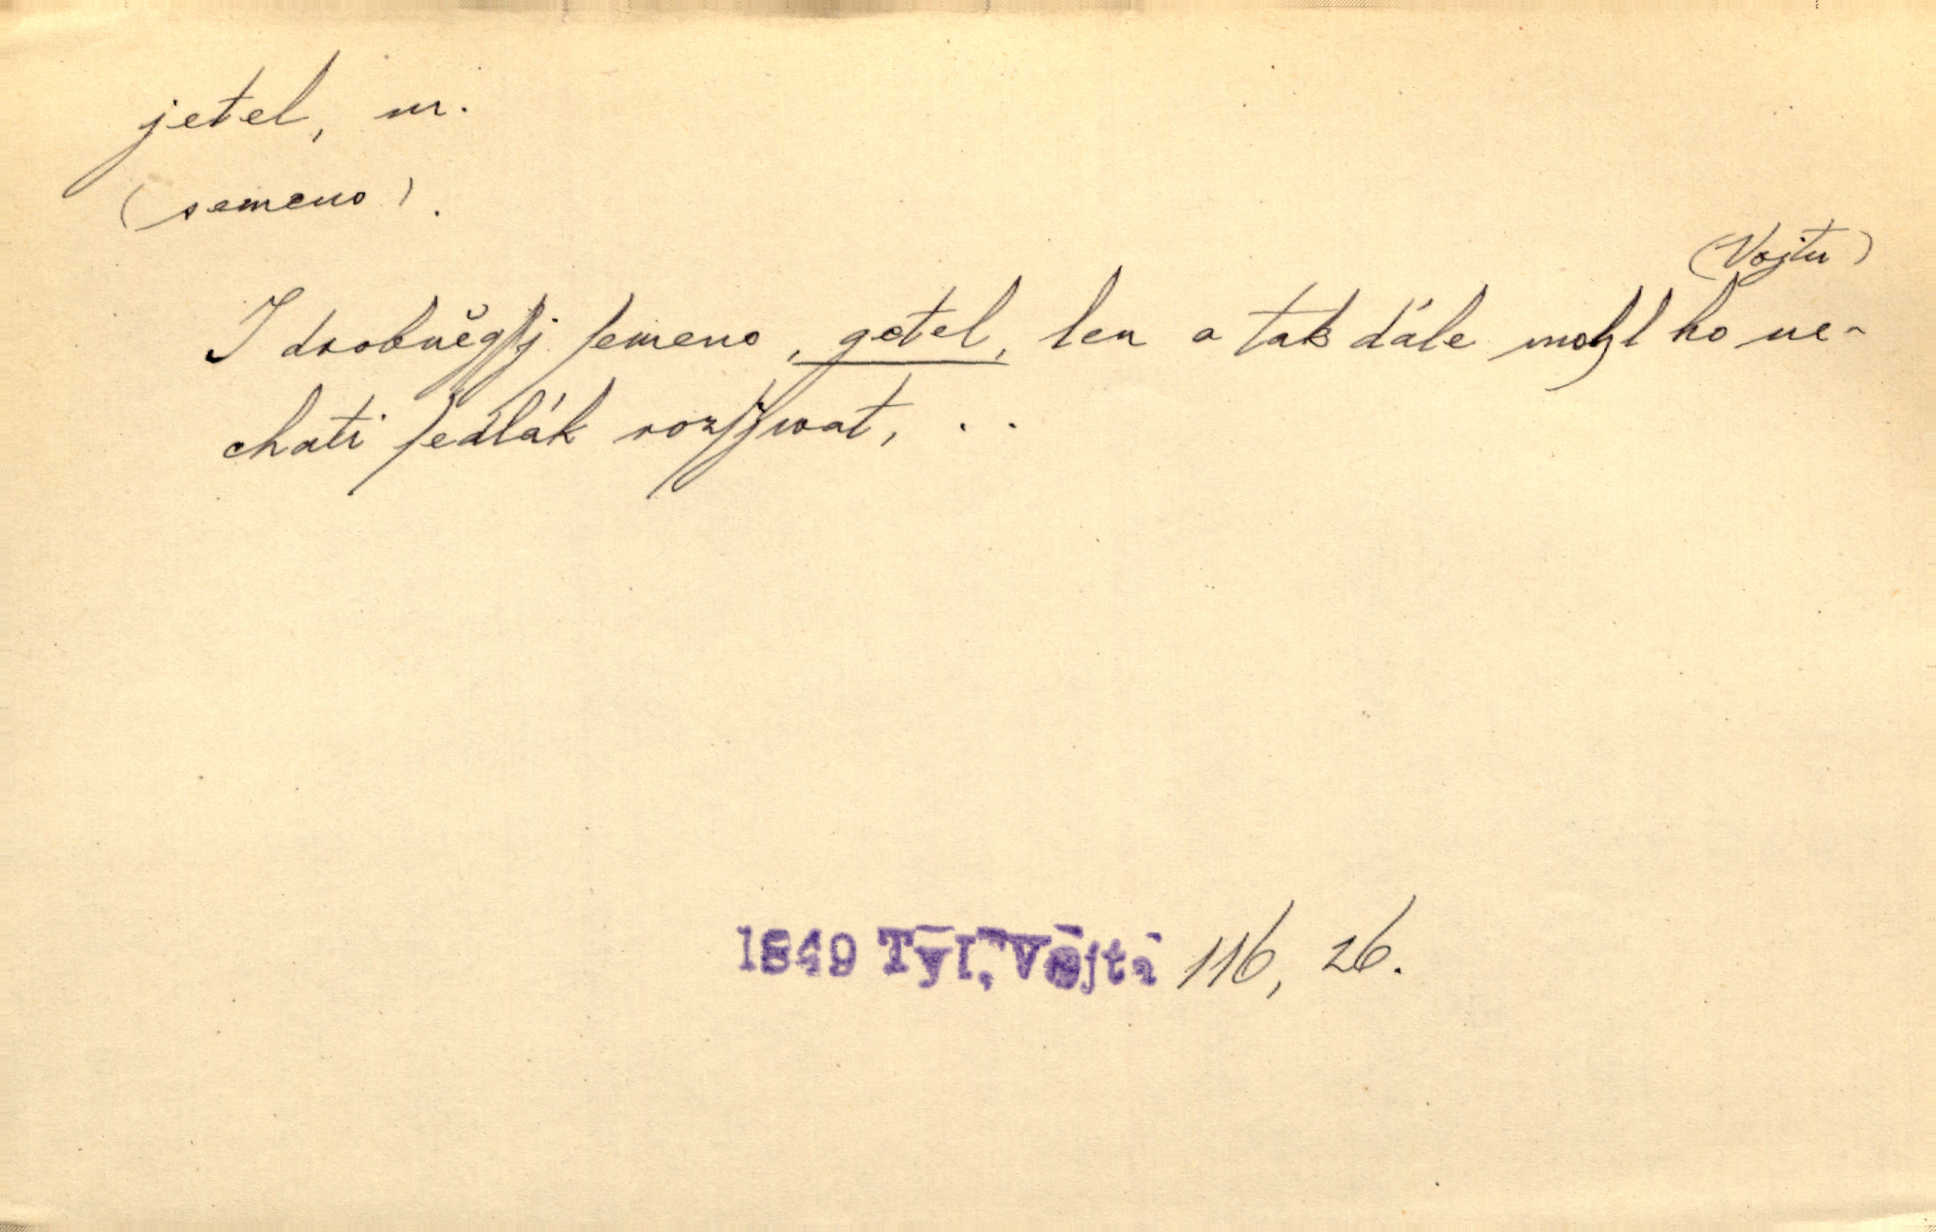 jetel, m.
(semeno).
(Vojtu)
I drobněgſſj ſemeno, getel, len a tak dále mohl ho ne-
chati ſedlák rozſýwat, . .
1849 Tyl, Vojta 116, 26.